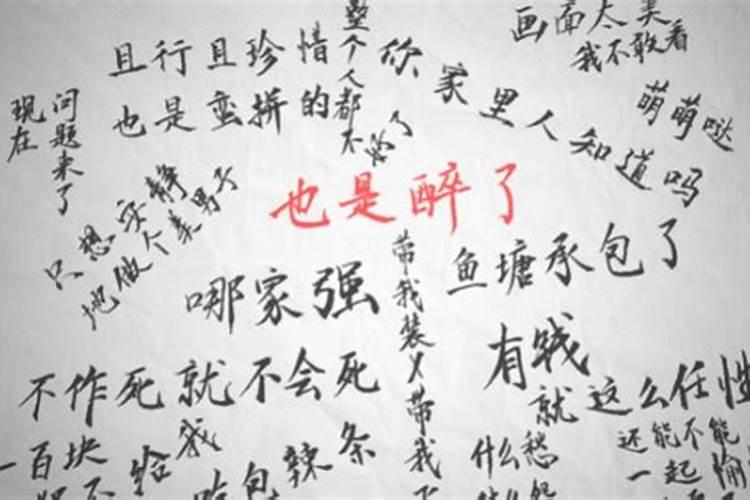 画面太美
我不敢看
整个人都不好了
且行且珍惜
你家里人知道吗
也是蛮拼的
萌萌哒
现在
问题来了
只想安静
地做个美男子
也是醉了
鱼塘承包了
哪家强
带我装
带我
有钱
就这么任性
不作死就不会死
一百块
给我
辣条
什么
愁
还能不能
一起
愉